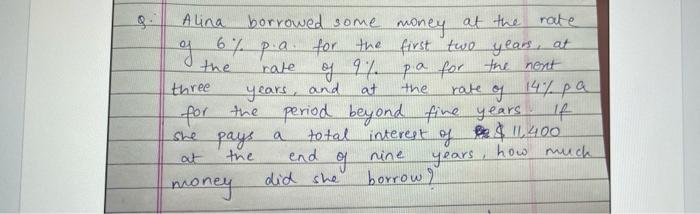 Q. Alina borrowed some money at the rate
of 6% p.a. for the first two years, at
the rate of 9% pa for the next
three years, and at the rate of 14% pa
for the period beyond five years. If
she pays a total interest of $ 11,400
at the end of nine years, how much
money did she borrow?